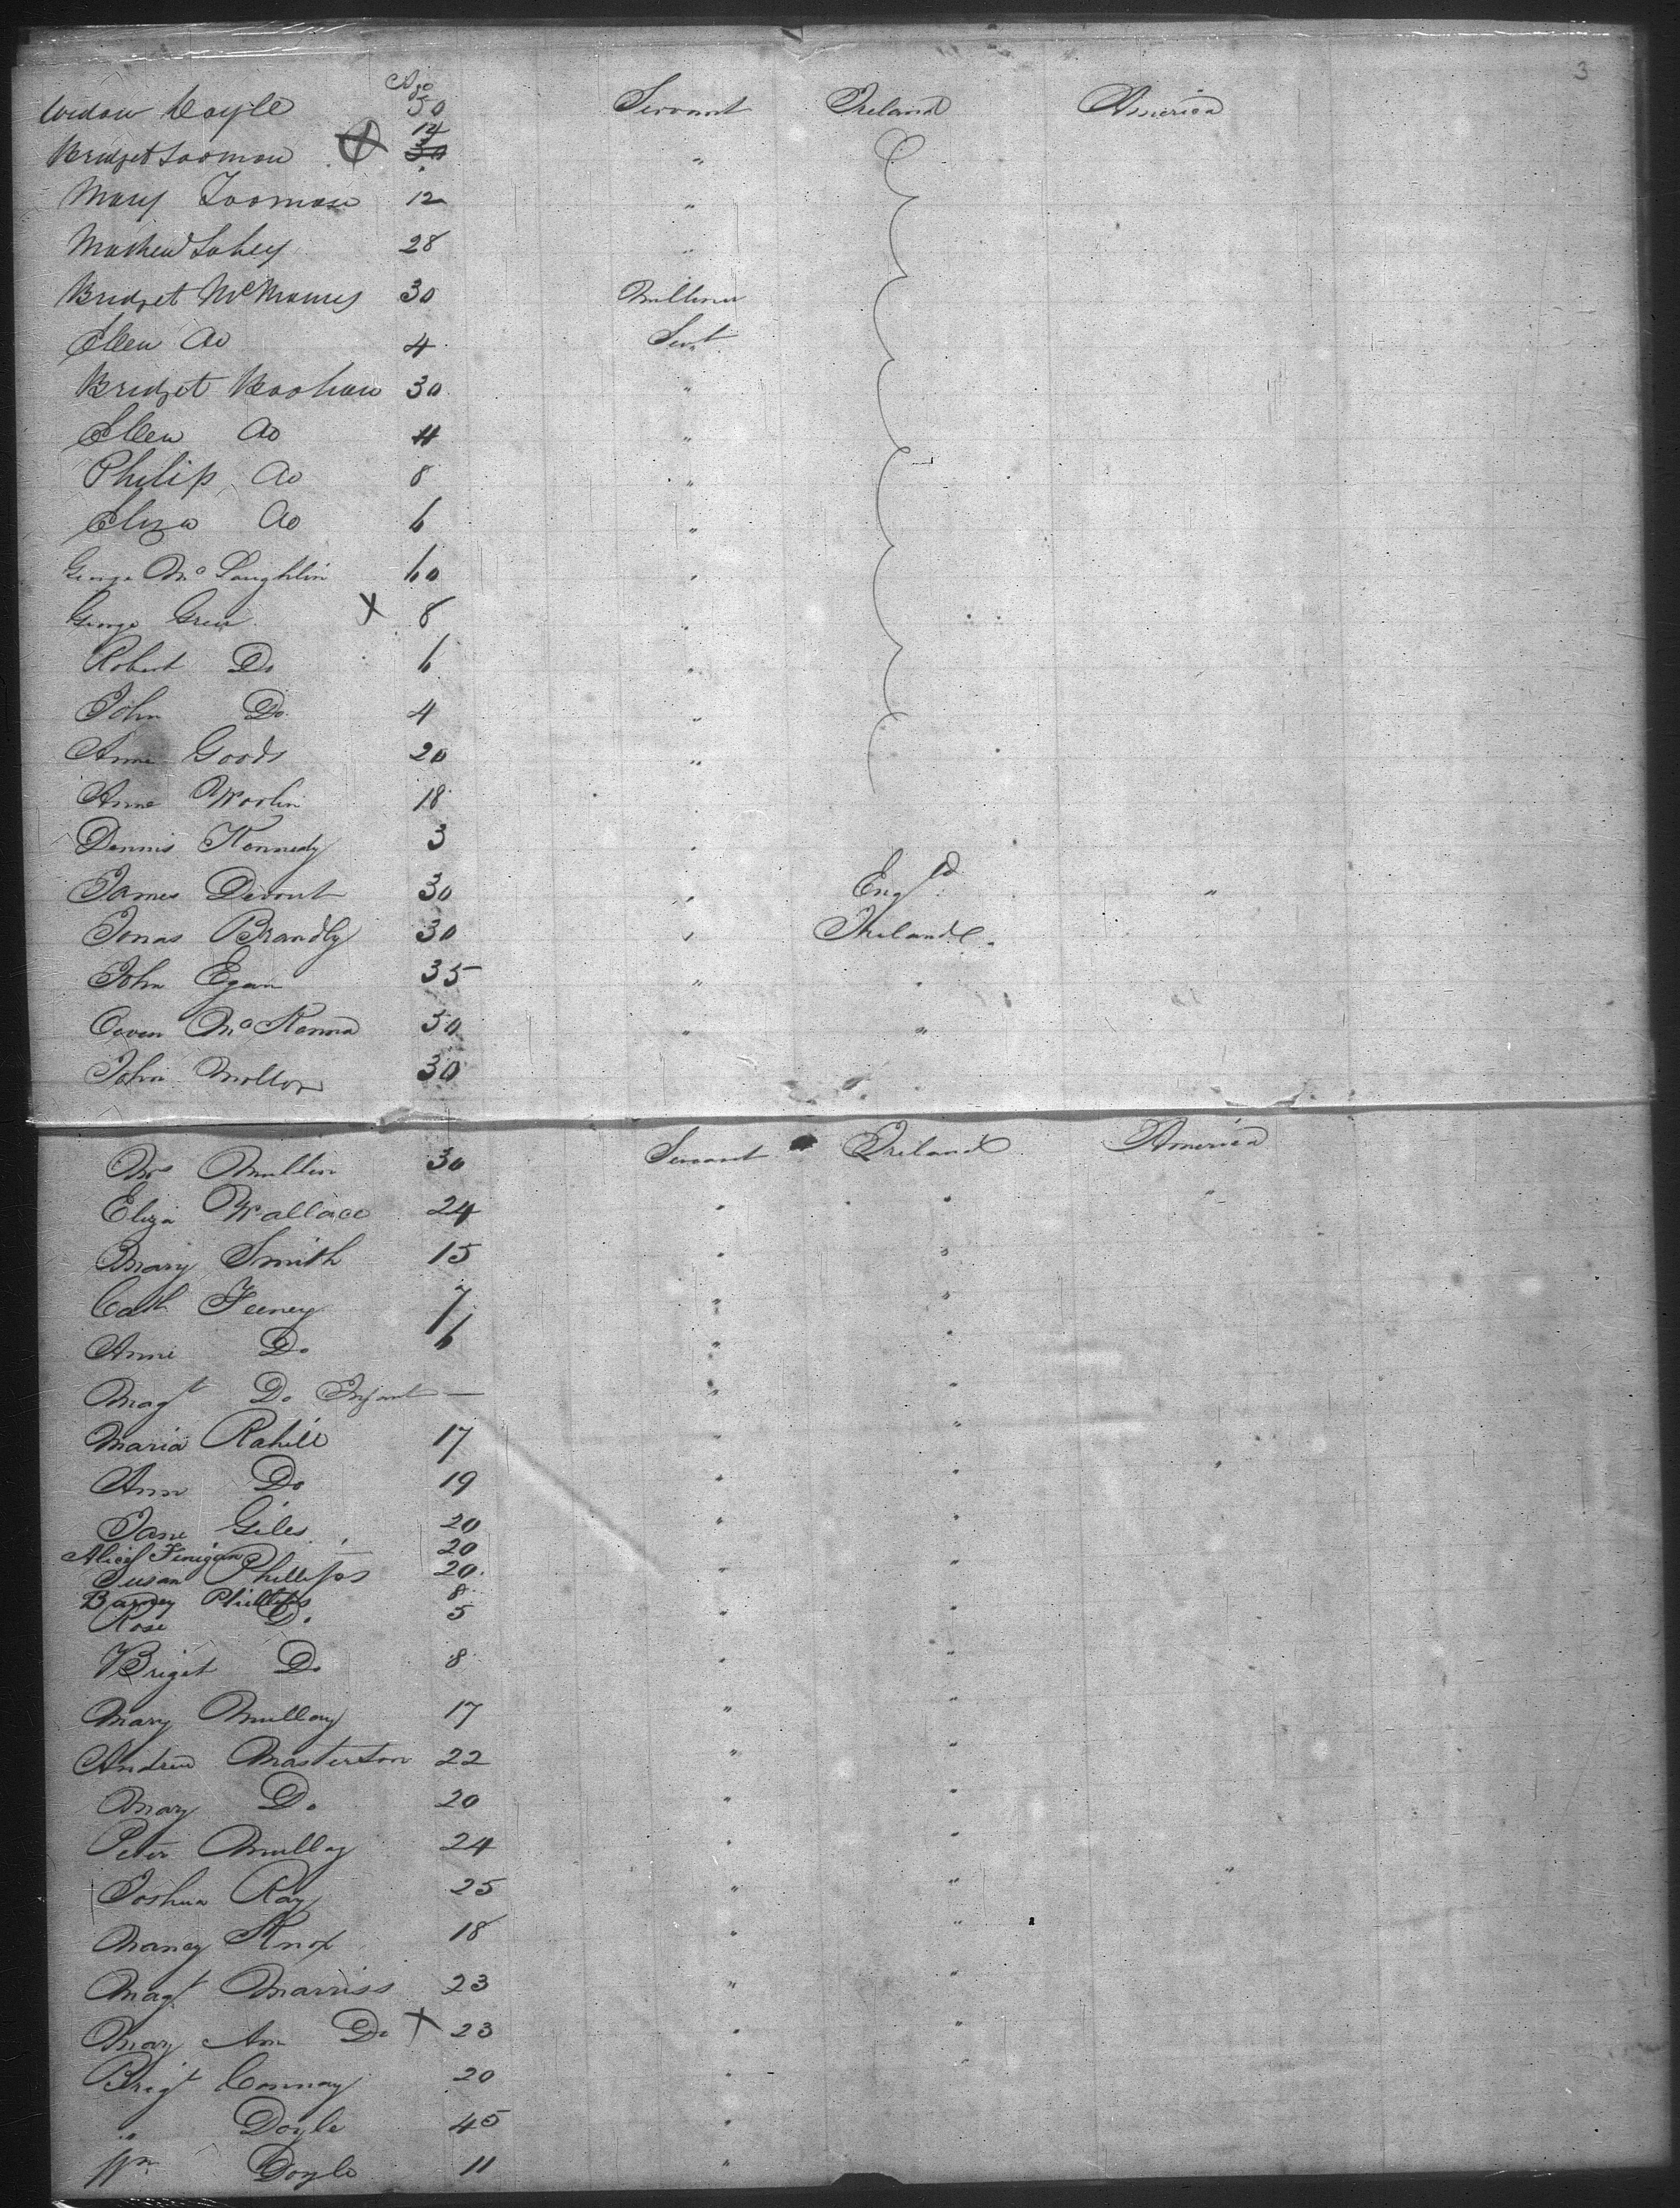 3
Age
Widow Coyle 50 Servant Ireland America
Bridget Loomau 14 30 "
Mary Toomau 12 "
Mathew Lahey 28 "
Bridget McManus 30 Milliner
Ellen do 4 Sert
Bridget 30 "
Ellen do 4 "
Philip do 8 "
Eliza do 6 "
George Mc Laughlin 60 "
George Green X 8 "
Robert Do 6 "
John Do 4 "
Anne Goods 20 "
Anne 18 "
Dennis Kennedy 3 "
James Devout 30 " Engld "
Jonas Brandly 30 " Ireland
John Egan 35 " "
Owen Mc Kenna 50 " "
John 30
Mrs Mullin 30 Servant Ireland America
Eliza Wallace 24 " " "
Mary Smith 15 " "
Cath Feeney 7 " "
Anne Do 6 " "
Magt Do Infant — " "
Maria Rahill 17 " "
Ann Do 19 " " "
Jane Giles 20 " "
Alice Finigan 20
Susan Phillips 20 " "
Barney Phillips 8
Rose Do 5 " "
Briget Do 8 " "
Mary Mullay 17 " "
Andrew Masterton 22 " "
Mary Do 20 " "
Peter Mullay 24 " "
Joshua Ray 25 " " "
Nancy Knox 18 " "
Magt Marriss 23 " "
Mary Ann Do X 23 " "
Brigt Conway 20 " "
" Doyle 45 "
Wm Doyle 11 "